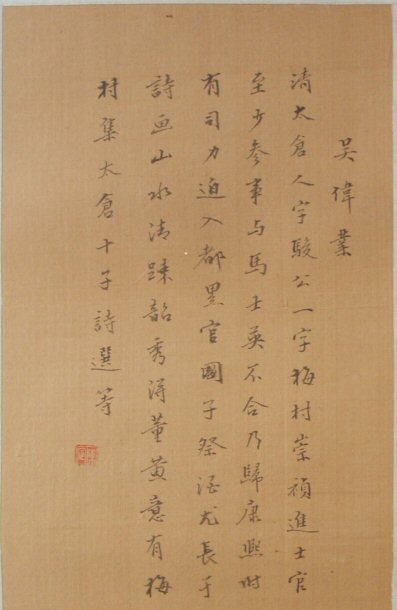 吳偉業
清太倉人字駿公一字梅村崇禎進士官
至少參事与馬士英不合乃歸康熙时
有司力迫入都累官國子祭酒尤長于
詩画山水清疎韶秀得董黃意有梅
村集太倉十子詩選等